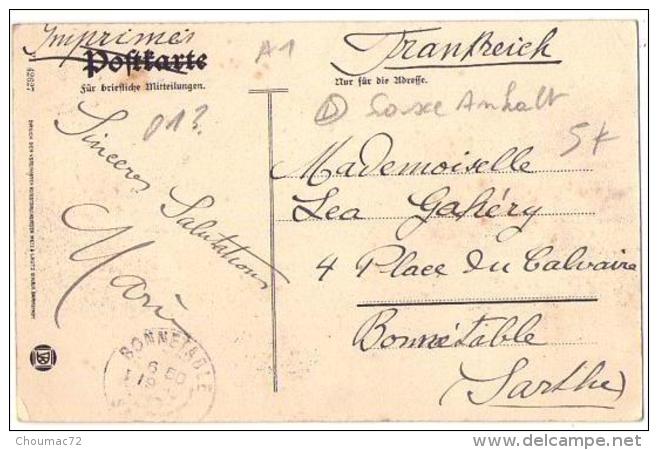 Imprimés
Postkarte
Für briefliche Mitteilungen.
A1
013.
Sincères
Salutations
Marie
42627
BONNETABLE
Frankreich
Nur für die Adresse.
D Saxe Anhalt
5
Mademoiselle
Lea Gahéry
4 Place du Calvaire
Bonnétable
(Sarthe)
Choumac72